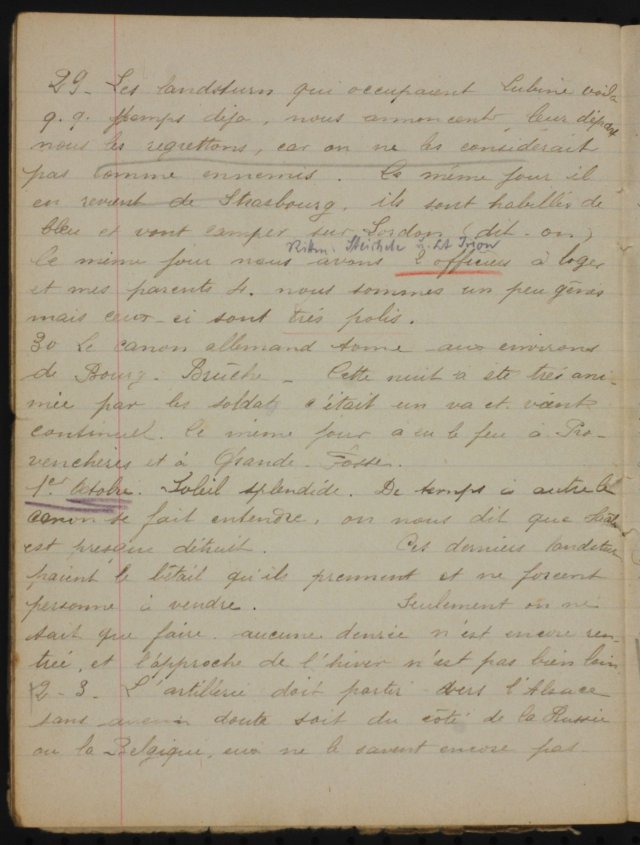 29 - Les landsturn qui occupaient Lubine voila
q. q. temps déja, nous annoncent leur départ
nous les regrettons, car on ne les considérait
pas comme ennemis. Ce même jour il
en revient de Strasbourg, ils sont habillés de
bleu et vont camper sur Lordon (dit-on)
u. Lt
le même jour nous avons 2 officiers à loger
et mes parents 4. nous sommes un peu gênés
mais ceux-ci sont très polis.
30 Le canon allemand tonne aux environs
de Bourg-Bruche - Cette nuit a été très ani-
mée par les soldats c'était un va et vient
continuel. Ce même jour a eu le feu à Pro-
venchères et à Grande-Fosse.
1er Octobre. Soleil splendide. De temps à autre le
canon se fait entendre, on nous dit que
est presque détruit. Ces derniers landstur
paient le bétail qu'ils prennent et ne forcent
personne à vendre. Seulement on ne
sait que faire aucune denrée n'est encore ren-
trée, et l'approche de l'hiver n'est pas bien loin
2 - 3. L'artillerie doit partir vers l'Alsace
sans doute soit du côté de la Russie
ou la Belgique, eux ne le savent encore pas